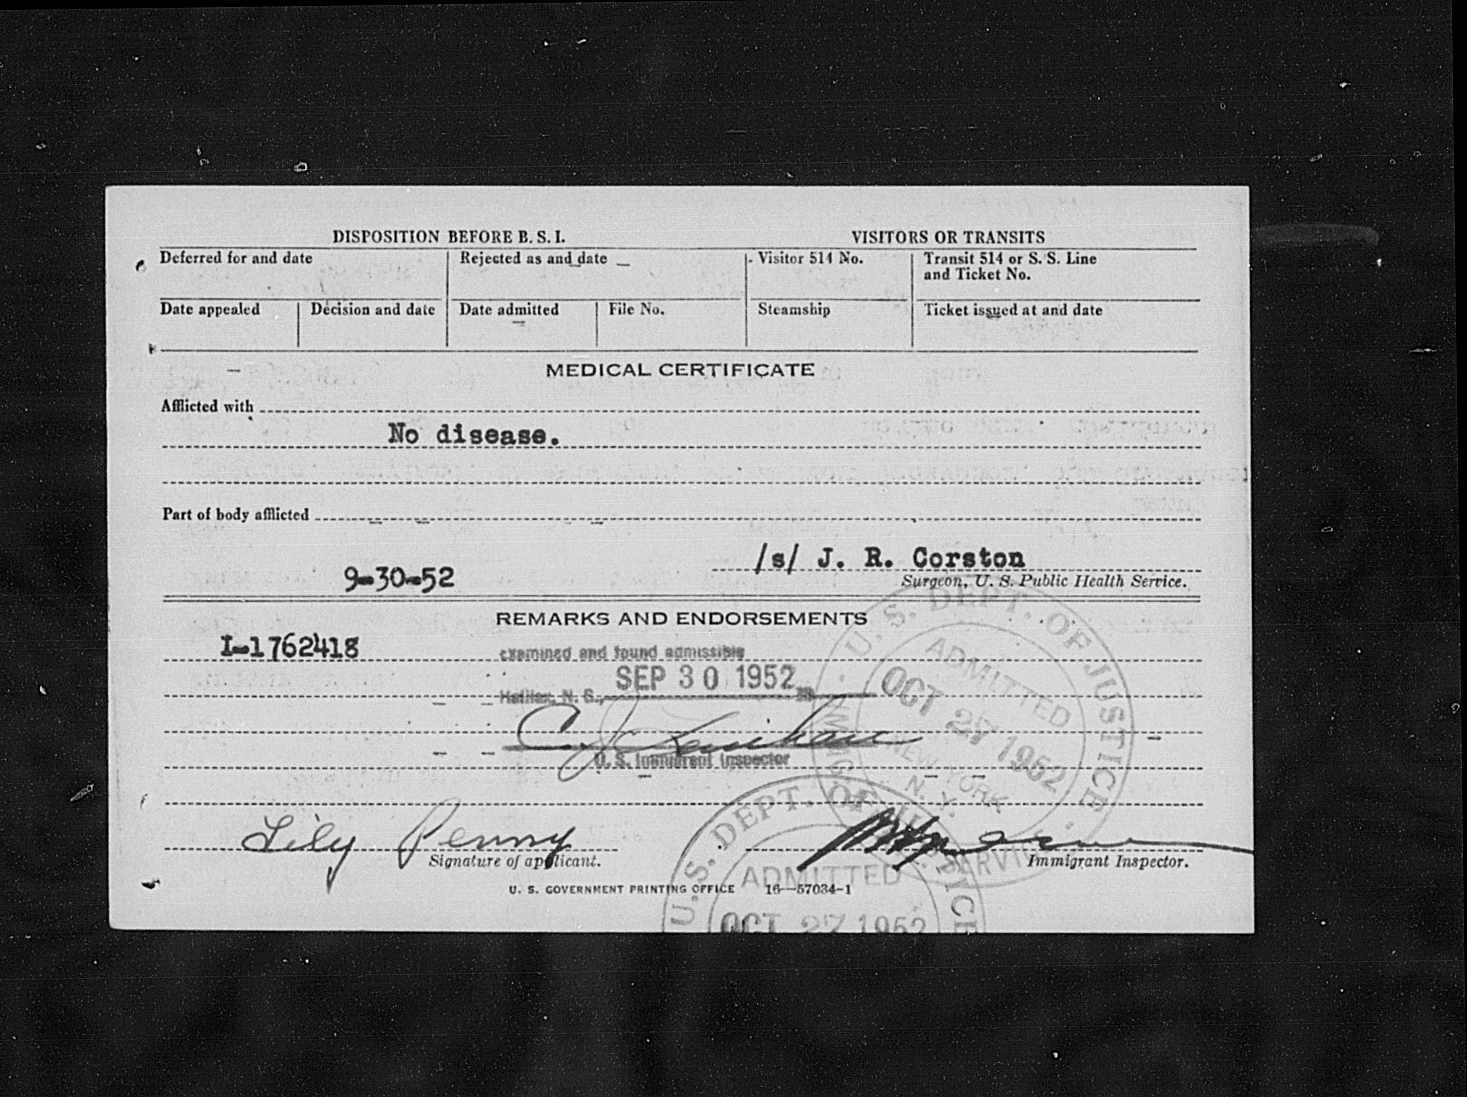 DISPOSITION BEFORE B. S. I.
VISITORS OR TRANSITS
Deferred for and date
Rejected as and date
Visitor 514 No.
Transit 514 or S. S. Line
and Ticket No.
Date appealed
Decision and date
Date admitted
File No.
Steamship
Ticket issued at and date
MEDICAL CERTIFICATE
Afflicted with
No disease.
Part of body afflicted
9-30-52
/s/ J. R. Corston
Surgeon, U. S. Public Health Service.
REMARKS AND ENDORSEMENTS
I-1762418
examined and found admissible
SEP 30 1952
Halifax, N. S.,
U. S. Immigrant Inspector
U. S. DEPT. OF JUSTICE
ADMITTED
OCT 27 1952
NEW YORK
N. Y.
Lily Penny
Signature of applicant.
Immigrant Inspector.
U. S. GOVERNMENT PRINTING OFFICE 16—57034-1
U. S. DEPT. OF JUSTICE
ADMITTED
OCT 27 1952